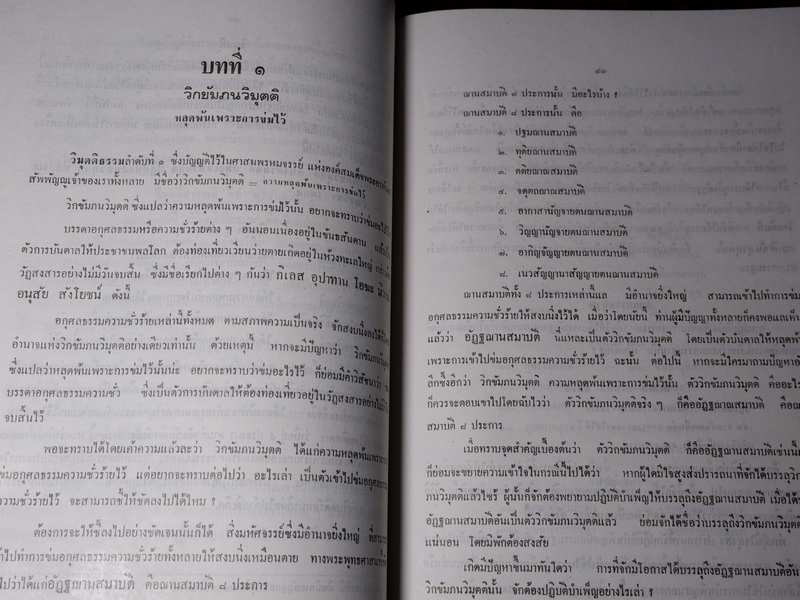 บทที่ ๑
วิกขัมภนวิมุตติ
หลุดพ้นเพราะการข่มไว้
วิมุตติธรรมลำดับที่ ๑ ซึ่งบัญญัติไว้ในศาสนพรหมจรรย์ แห่งองค์สมเด็จพระ
สัพพัญญูเจ้าของเราทั้งหลาย มีชื่อว่าวิกขัมภนวิมุตติ = ความหลุดพ้นเพราะการข่มไว้
วิกขัมภนวิมุตติ ซึ่งแปลว่าความหลุดพ้นเพราะการข่มไว้นั้น อยากจะทราบว่าข่มอะไรไว้
บรรดาอกุศลธรรมหรือความชั่วร้ายต่าง ๆ อันนอนเนื่องอยู่ในขันธสันดาน
ตัวการบันดาลให้ประชาชนพลโลก ต้องท่องเที่ยวเวียนว่ายตายเกิดอยู่ในห้วงทะเลใหญ่
วัฏสงสารอย่างไม่มีวันจบสิ้น ซึ่งมีชื่อเรียกไปต่าง ๆ กันว่า กิเลส อุปาทาน โอฆะ
อนุสัย สังโยชน์ ดังนี้
อกุศลธรรมความชั่วร้ายเหล่านี้ทั้งหมด ตามสภาพความเป็นจริง จักสงบนิ่งลงได้
อำนาจแห่งวิกขัมภนวิมุตติอย่างเดียวเท่านั้น ด้วยเหตุนี้ หากจะมีปัญหาว่า
ซึ่งแปลว่าหลุดพ้นเพราะการข่มไว้นั้นน่ะ อยากจะทราบว่าข่มอะไรไว้ ก็ย่อมมีคำวิสัชนาว่า
บรรดาอกุศลธรรมความชั่ว ซึ่งเป็นตัวการบันดาลให้ต้องท่องเที่ยวอยู่ในวัฏสงสารอย่างไม่มี
จบสิ้นไว้
พอจะทราบได้โดยเค้าความแล้วละว่า วิกขัมภนวิมุตติ ได้แก่ความหลุดพ้นเพราะการ
ข่มอกุศลธรรมความชั่วร้ายไว้ แต่อยากจะทราบต่อไปว่า อะไรเล่า เป็นตัวเข้าไปข่มอกุศลธรรม
ความชั่วร้ายไว้ จะสามารถชี้ให้ชัดลงไปได้ไหม ?
ต้องการจะให้ชี้ลงไปอย่างชัดเจนนั้นก็ได้ สิ่งมหัศจรรย์ซึ่งมีอำนาจยิ่งใหญ่
เข้าไปทำการข่มอกุศลธรรมความชั่วร้ายทั้งหลายให้สงบนิ่งเหมือนตาย ทางพระพุทธศาสนา
ไปว่าได้แก่อัฏฐฌานสมาบัติ คือฌานสมาบัติ ๘ ประการ
ฌานสมาบัติ ๘ ประการนั้น มีอะไรบ้าง ?
ฌานสมาบัติ ๘ ประการนั้น คือ
๑. ปฐมฌานสมาบัติ
๒. ทุติยฌานสมาบัติ
๓. ตติยฌานสมาบัติ
๔. จตุตถฌานสมาบัติ
๕. อากาสานัญจายตนฌานสมาบัติ
๖. วิญญาณัญจายตนฌานสมาบัติ
๗. อากิญจัญญายตนฌานสมาบัติ
๘. เนวสัญญานาสัญญายตนฌานสมาบัติ
ฌานสมาบัติทั้ง ๘ ประการเหล่านี้แล มีอำนาจยิ่งใหญ่ สามารถเข้าไปทำการข่ม
อกุศลธรรมความชั่วร้ายให้สงบนิ่งไว้ได้ เมื่อว่าโดยนัยนี้ ท่านผู้มีปัญญาทั้งหลายก็คงพอแลเห็น
แล้วว่า อัฏฐฌานสมาบัติ นี่แหละเป็นตัววิกขัมภนวิมุตติ โดยเป็นตัวบันดาลให้หลุดพ้น
เพราะการเข้าไปข่มอกุศลธรรมความชั่วร้ายไว้ ฉะนั้น ต่อไปนี้ หากจะมีใครมาถามปัญหา
ลึกซึ้งอีกว่า วิกขัมภนวิมุตติ ความหลุดพ้นเพราะการข่มไว้นั้น ตัววิกขัมภนวิมุตติ คืออะไร
ก็ควรจะตอบเขาไปโดยฉับไวว่า ตัววิกขัมภนวิมุตติจริง ๆ ก็คืออัฏฐฌานสมาบัติ คือฌาน
สมาบัติ ๘ ประการ
เมื่อทราบจุดสำคัญเบื้องต้นว่า ตัววิกขัมภนวิมุตติ ก็คืออัฏฐฌานสมาบัติเช่นนี้
ก็ย่อมจะขยายความเข้าใจในกรณีนี้ไปได้ว่า หากผู้ใดมีใจสูงส่งปรารถนาที่จักได้บรรลุวิก
ภนวิมุตติแล้วไซร้ ผู้นั้นก็จักต้องพยายามปฏิบัติบำเพ็ญให้บรรลุถึงอัฏฐฌานสมาบัติ เมื่อได้
อัฏฐฌานสมาบัติอันเป็นตัววิกขัมภนวิมุตติแล้ว ย่อมจักได้ชื่อว่าบรรลุถึงวิกขัมภนวิมุตติ
แน่นอน โดยมิพักต้องสงสัย
เกิดมีปัญหาขึ้นมาทันใดว่า การที่จักมีโอกาสได้บรรลุถึงอัฏฐฌานสมาบัติอัน
วิกขัมภนวิมุตตินั้น จักต้องปฏิบัติบำเพ็ญอย่างไรเล่า ?